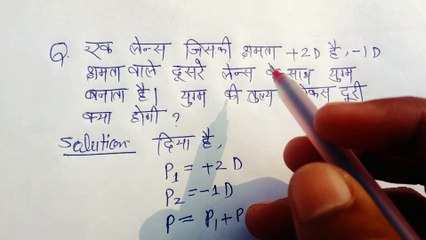 Q. एक लेन्स जिसकी क्षमता +2D है, -1D
क्षमता वाले दूसरे लेन्स के साथ युग्म
बनाता है। युग्म की तुल्य फोकस दूरी
क्या होगी ?
Solution: दिया है,
P₁ = +2 D
P₂ = -1 D
P = P₁ + P